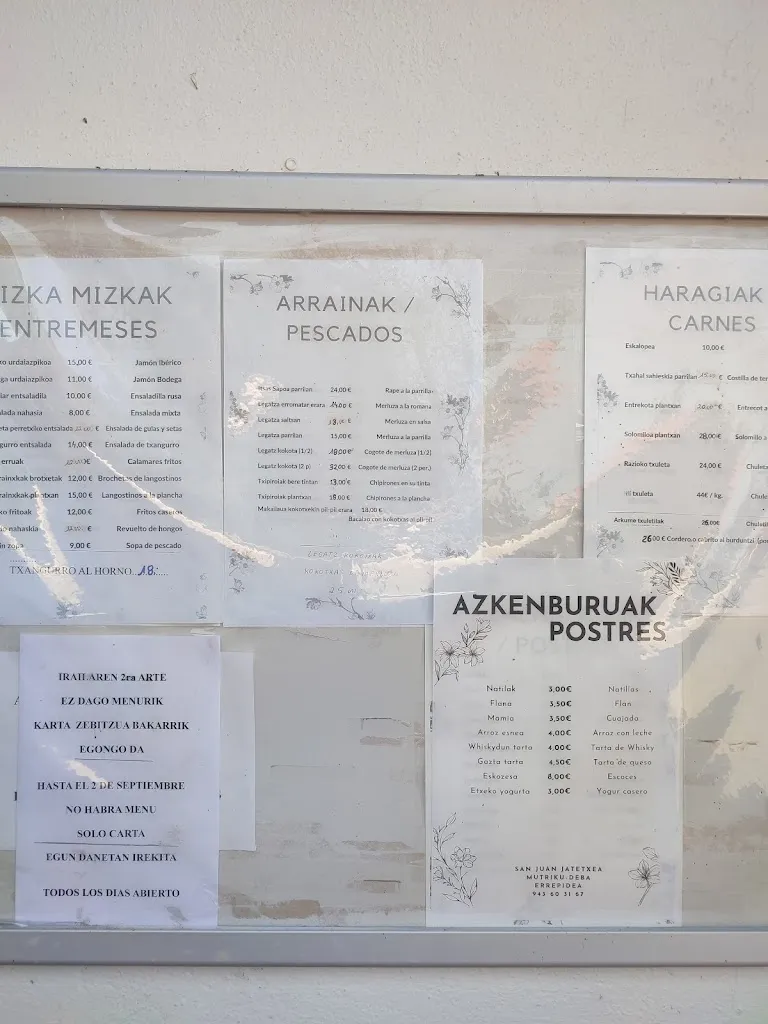 IZKA MIZKAK
ENTREMESES
urdaiazpikoa 15,00 € Jamón Ibérico
urdaiazpikoa 11,00 € Jamón Bodega
entsaladila 10,00 € Ensaladilla rusa
nahasia 8,00 € Ensalada mixta
eta perretxiko entsalada € Ensalada de gulas y setas
entsalada 14,00 € Ensalada de txangurro
erruak Calamares fritos
brotxetak 12,00 € Brochetas de langostinos
plantxan 15,00 € Langostinos a la plancha
fritoak 12,00 € Fritos caseros
nahaskia € Revuelto de hongos
zopa 9,00 € Sopa de pescado
TXANGURRO AL HORNO. 18.
ARRAINAK /
PESCADOS
Sapoa parrilan 24,00 € Rape a la parrilla
Legatza erromatar erara 14,00 € Merluza a la romana
Legatza saltsan Merluza en salsa
Legatza parrilan 15,00 € Merluza a la parrilla
Legatz kokota (1/2) 18,00 € Cogote de merluza (1/2)
Legatz kokota (2 p) 32,00 € Cogote de merluza (2 per.)
Txipiroiak bere tintan 13,00 € Chipirones en su tinta
Txipiroiak plantxan 18,00 € Chipirones a la plancha
Makailaua kokotxekin pil-pil erara 18,00 €
Bacalao con kokotxas al pil-pil
HARAGIAK
CARNES
Eskalopea 10,00 €
Txahal saihieskia parrilan € Costilla de ter
Entrekota plantxan € Entrecot a
Solomiloa plantxan 28,00 € Solomillo a
Razioko txuleta 24,00 € Chulet
txuleta 44€ / kg. Chulet
Arkume txuletilak Chuleti
26,00 € Cordero o cabrito al burduntzi
AZKENBURUAK
POSTRES
Natilak 3,00€ Natillas
Flana 3,50€ Flan
Mamia 3,50€ Cuajada
Arroz esnea 4,00€ Arroz con leche
Whiskydun tarta 4,00€ Tarta de Whisky
Gazta tarta 4,50€ Tarta de queso
Eskozesa 8,00€ Escoces
Etxeko yogurta 3,00€ Yogur casero
SAN JUAN JATETXEA
MUTRIKU-DEBA
ERREPIDEA
943 60 31 67
IRAILAREN 2ra ARTE
EZ DAGO MENURIK
KARTA ZERBITZUA BAKARRIK
EGONGO DA
HASTA EL 2 DE SEPTIEMBRE
NO HABRA MENU
SOLO CARTA
EGUN DANETAN IREKITA
TODOS LOS DIAS ABIERTO